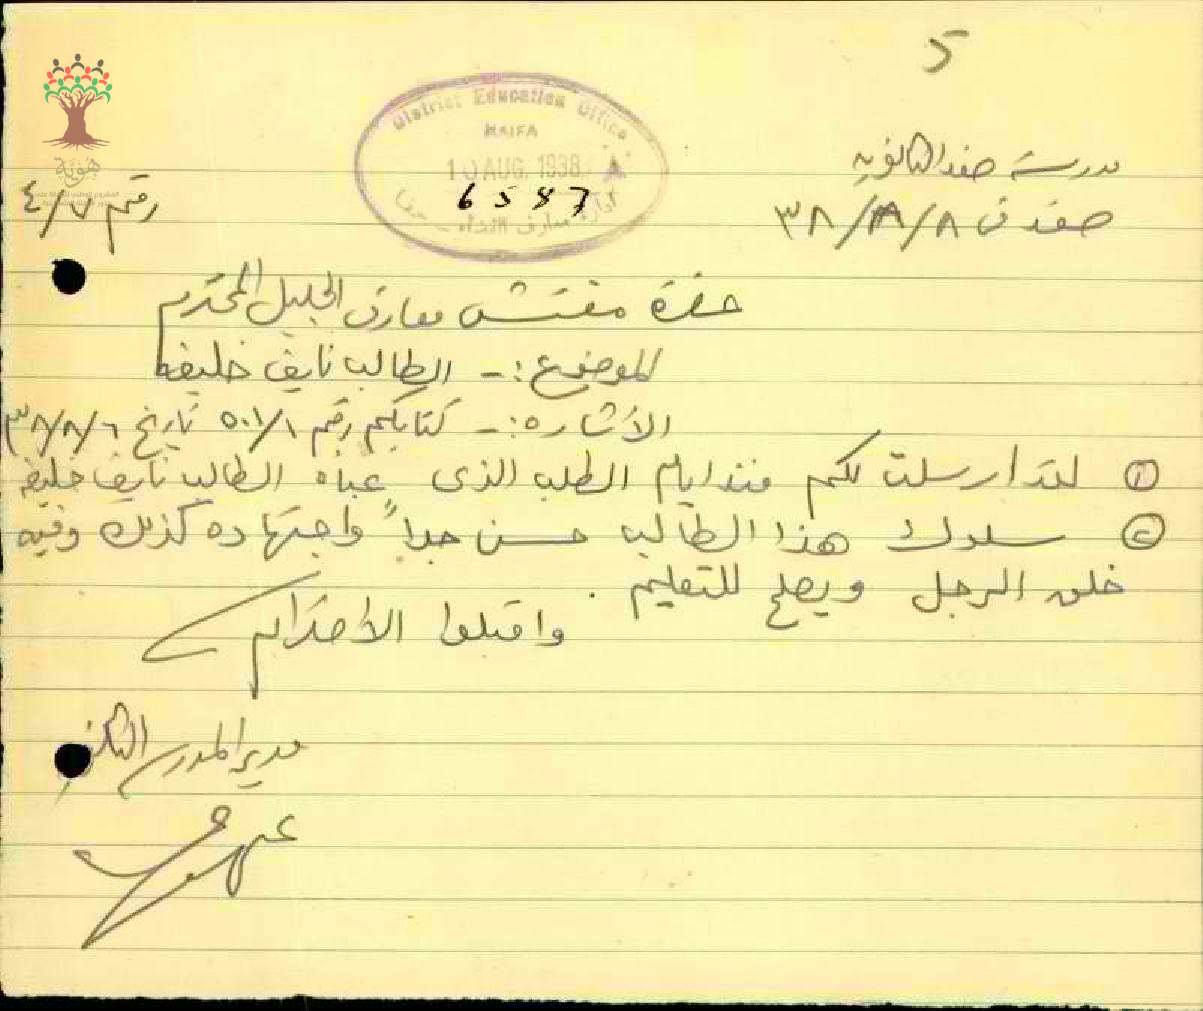 5
District Education Office
HAIFA
10 AUG. 1938
6587
هوية
مدرسة صفد الثانوية
صفد في ٨/٨/٣٨
رقم ٤/٧
حضرة مفتش معارف الجليل المحترم
الموضوع :- الطالب نايف خليفه
الاشاره :- كتابكم رقم ٥٠١/١ تاريخ ٣٨/٨/٦
① لقد ارسلت لكم منذ ايام الطلب الذى عباه الطالب نايف خليفه
② سلوك هذا الطالب حسن جداً واجتهاده كذلك وفيه
خلق الرجل ويصلح للتعليم .
واقبلوا الاحترام
مدير المدرسة